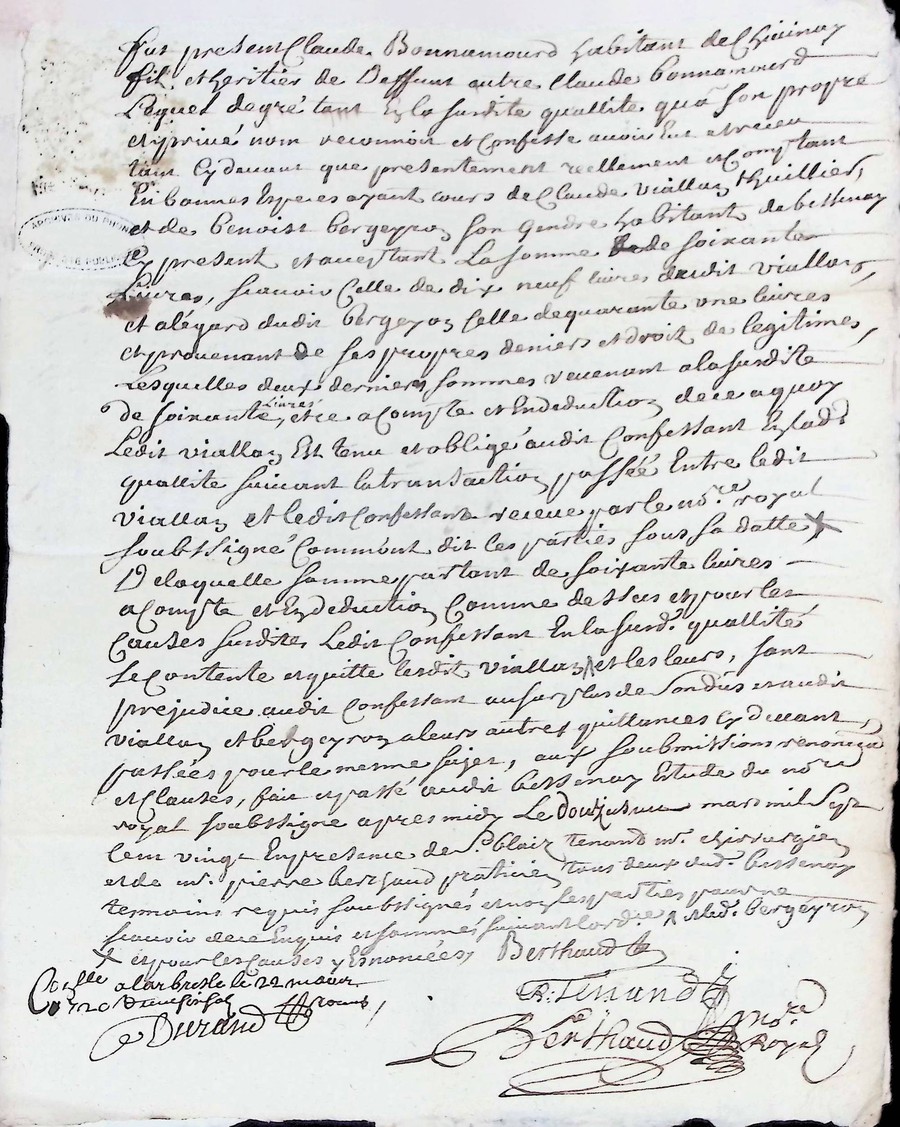 Fut present Claude Bonnamourd habitant de Chivinay
fils et heritier de Deffunt autre Claude bonnamourd
Lequel de gré tant En la susdite quallite qua son propre
et privé nom reconnoit et Confesse avoir Eut et receu
tant Cy devant que presentement reellement et Comptant
En bonnes Especes ayant cours de Claude viallon thuillier,
et de benoist bergeyron son gendre habitant de bessenay
Cy present et acceptant La somme de soixante
Livres, scavoir Celle de dix neuf livres dudit viallon,
et alégard dudit bergeyron Celle de quarante une livres
et provenant de ses propres deniers et droit de legitimes,
Lesquelles deux dernieres sommes revenant a la susdite
de soixante Livres, et ce a Compte et En deduction de ce a quoy
Ledit viallon Est tenu et obligé audit Confessant En lad.
quallite suivant la transaction passée Entre ledit
viallon et ledit Confessant receue par le no.re royal
soubssigné Comm'ont dit les parties sous sa datte X
De laquelle somme partant de soixante livres
a Compte et En deduction Comme dessus et pour les
Causes susdites Ledit Confessant En la susd. quallité
Se Contente et quitte lesdit viallon et les leurs, sans
prejudice audit Confessant au surplus de son dûs et audit
viallon et bergeyron a leurs autres quittances Cy devant,
passées pour le meme sujet, aux soubmissions renonca
et Clauses, fait et passé audit bessenay Etude du no.re
royal soubssigne apres midy Le douzieme mars mil sept
Cent vingt En presence de S. blaix tenand m. chirurgien
et de m. pierre berthaud praticien tous deux dud. bessenay
tesmoins requis soubssignés et non les parties pour ne
scavoir de ce Enquis et sommés suivant lordce ʌ et led. bergeyron
X et pour les Causes y Enoncées Berthaud
Con.lle a larbresle le 22 mars
1720
Durand
B. Tenand
Berthaud no.re
Royal